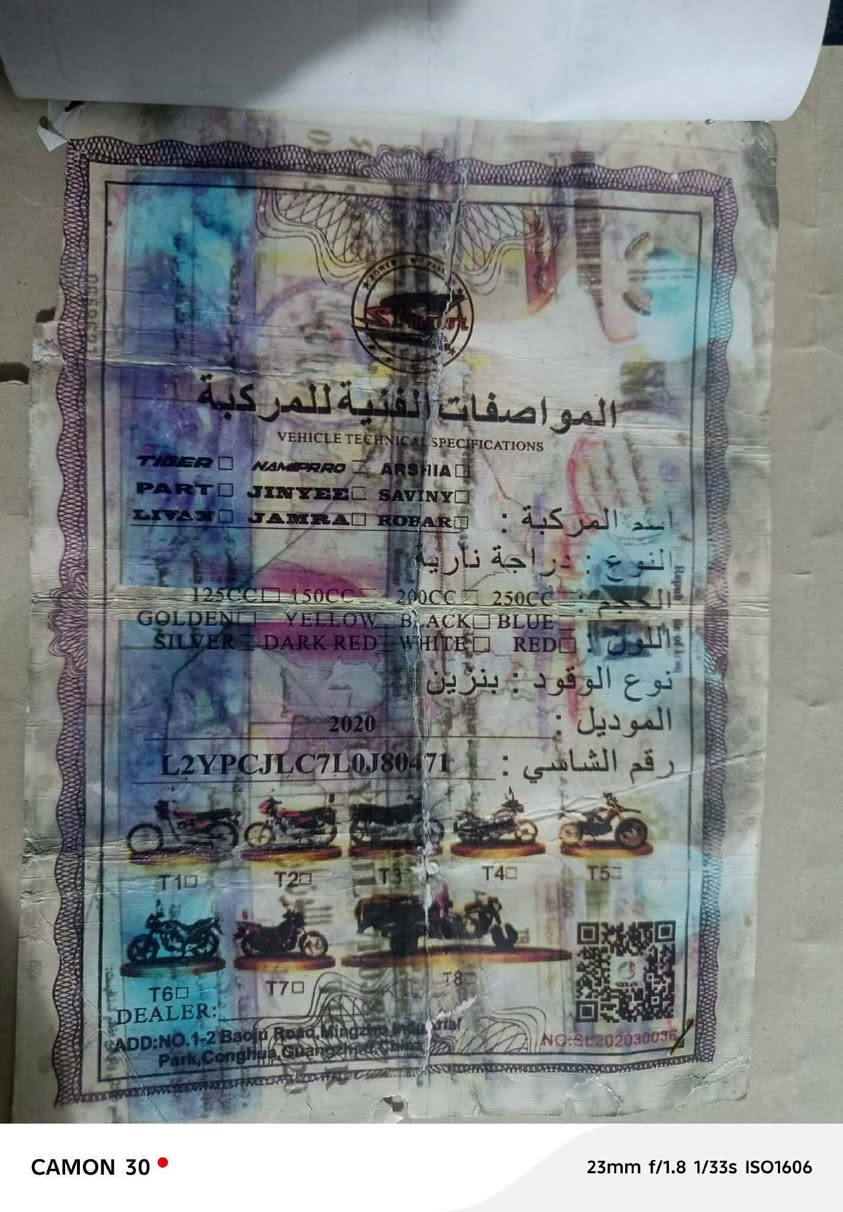 المواصفات الفنية للمركبة
VEHICLE TECHNICAL SPECIFICATIONS
TIGER □ NAMIPRRO □ ARSHIA □
PART □ JINYEE □ SAVINY □
اسم المركبة : LIVAN □ JAMRA □ ROBAR □
النوع : دراجة نارية
الحجم : 125CC □ 150CC □ 200CC □ 250CC
GOLDEN □ YELLOW □ BLACK □ BLUE
اللون : SILVER □ DARK RED □ WHITE □ RED □
نوع الوقود : بنزين
الموديل : 2020
رقم الشاسي : L2YPCJLC7L0J80471
T1 □ T2 □ T3 T4 □ T5 □
T6 □ T7 □ T8 □
DEALER:
ADD:NO.1-2 Baoju Road, Industrial
Park,Conghua,Guangzhou,China
CAMON 30
23mm f/1.8 1/33s ISO1606